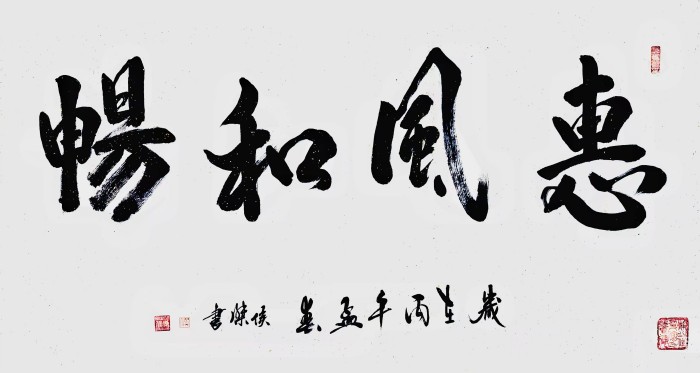 惠風和暢
歲在丙午孟春 侯 書